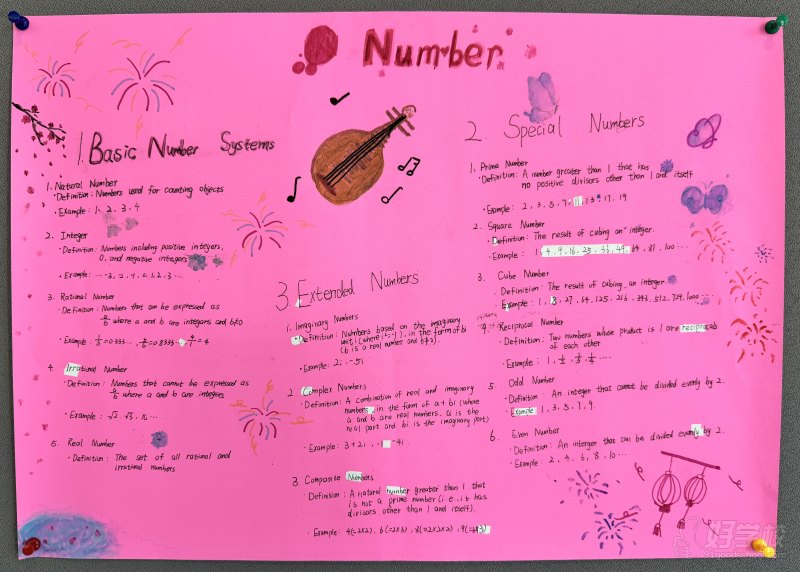 Number
1. Basic Number Systems
1. Natural Number
• Definition: Numbers used for counting objects
• Example: 1, 2, 3, 4
2. Integer
• Definition: Numbers including positive integers,
0, and negative integers
• Example:
3. Rational Number
• Definition: Numbers that can be expressed as
a/b where a and b are integers and b≠0
• Example: 1/3=0.333...,
4. Irrational Number
• Definition: Numbers that cannot be expressed as
a/b where a and b are integers
• Example: √2, √3,
5. Real Number
• Definition: The set of all rational and
irrational numbers
3. Extended Numbers
1. Imaginary Numbers
• Definition: Numbers based on the imaginary
unit i (where i²=-1), in the form of bi
(b is a real number and b≠0).
• Example: 2i, -5i
2. Complex Numbers
• Definition: A combination of real and imaginary
numbers, in the form of a + bi (where
a and b are real numbers, a is the
real part and bi is the imaginary part)
• Example: 3+2i, -4i
3 Composite Numbers
Definition: A natural number greater than 1 that
is not a prime number (i.e., it has
divisors other than 1 and itself).
• Example: 4(=2×2), 6(=2×3), 8(=2×2×2), 9(=3×3)
2. Special Numbers
1. Prime Number
• Definition: A number greater than 1 that has
no positive divisors other than 1 and itself
• Example: 2, 3, 5, 7, 11, 13, 17, 19
2. Square Number
• Definition: The result of cubing an integer.
• Example: 1, 4, 9, 16, 25, 36, 49, 64, 81, 100...
3. Cube Number
• Definition: The result of cubing an integer.
• Example: 1, 8, 27, 64, 125, 216, 343, 512, 729, 1000...
4. Reciprocal Number
• Definition: Two numbers whose product is 1 are reciprocals
of each other
• Example: 1, 1/2, 1/3, 1/4...
5. Odd Number
• Definition: An integer that cannot be divided evenly by 2.
• Example: 1, 3, 5, 7, 9.
6. Even Number
• Definition: An interger that can be divided evenly by 2.
• Example: 2, 4, 6, 8, 10...
好学校